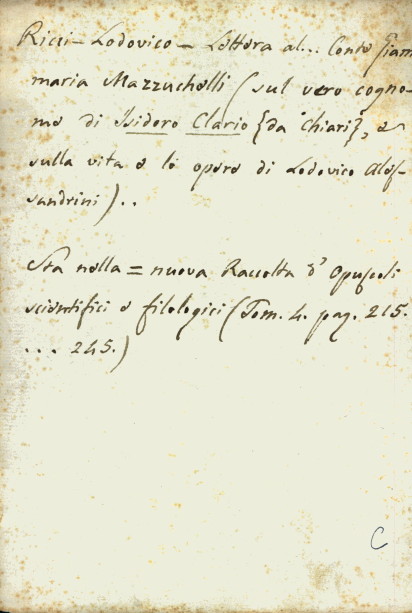 Ricci - Lodovico - Lettera al... Conte Giam
maria Mazzuchelli (sul vero cogno-
me di Isidoro Clario {da Chiari}, e
sulla vita e le opere di Lodovico Ales-
sandrini)..
Sta nella = nuova Raccolta d' Opuscoli
scientifici e filologici (Tom. 4. pag. 215.
... 245.)
C